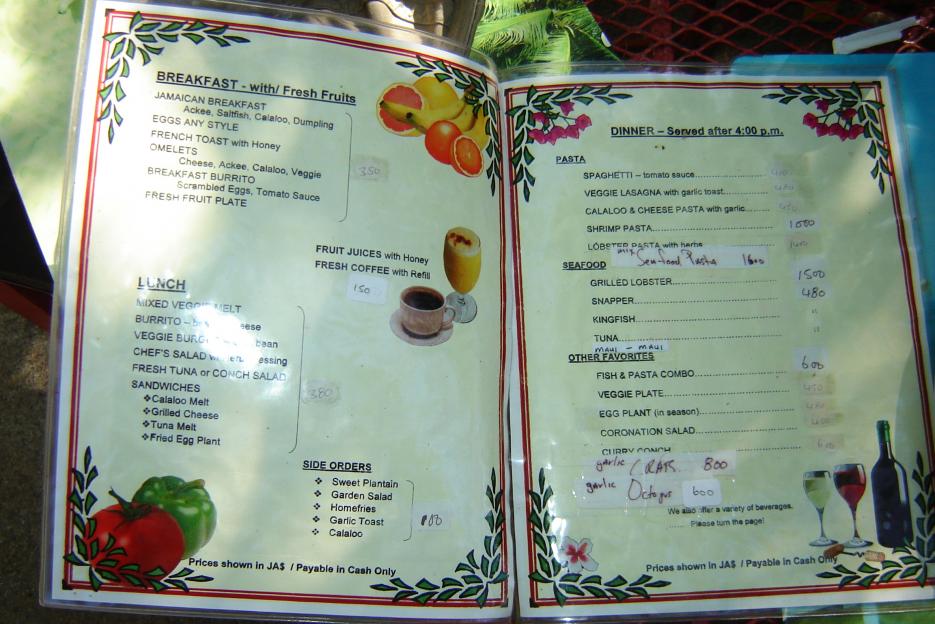 BREAKFAST - with/ Fresh Fruits
JAMAICAN BREAKFAST
Ackee, Saltfish, Calaloo, Dumpling
EGGS ANY STYLE
FRENCH TOAST with Honey
OMELETS
Cheese, Ackee, Calaloo, Veggie
BREAKFAST BURRITO
Scrambled Eggs, Tomato Sauce
FRESH FRUIT PLATE
350
FRUIT JUICES with Honey
FRESH COFFEE with Refill
150
LUNCH
MIXED VEGGIE MELT
BURRITO –
VEGGIE bean
CHEF'S SALAD
FRESH TUNA or CONCH SALAD
SANDWICHES
❖Calaloo Melt
❖Grilled Cheese
❖Tuna Melt
❖Fried Egg Plant
380
SIDE ORDERS
❖ Sweet Plantain
❖ Garden Salad
❖ Homefries
❖ Garlic Toast
❖ Calaloo
100
Prices shown in JA$ / Payable in Cash Only
DINNER – Served after 4:00 p.m.
PASTA
SPAGHETTI – tomato sauce
VEGGIE LASAGNA with garlic toast
CALALOO & CHEESE PASTA with garlic
SHRIMP PASTA 1000
LOBSTER PASTA with herbs
mix Seafood Pasta 1600
SEAFOOD
GRILLED LOBSTER 1500
SNAPPER 480
KINGFISH "
TUNA "
MAUI - MAUI
OTHER FAVORITES
FISH & PASTA COMBO 600
VEGGIE PLATE 450
EGG PLANT (in season)
CORONATION SALAD
CURRY CONCH
garlic CRABS 800
garlic Octopus 600
We also offer a variety of beverages.
Please turn the page!
Prices shown in JA$ / Payable in Cash Only